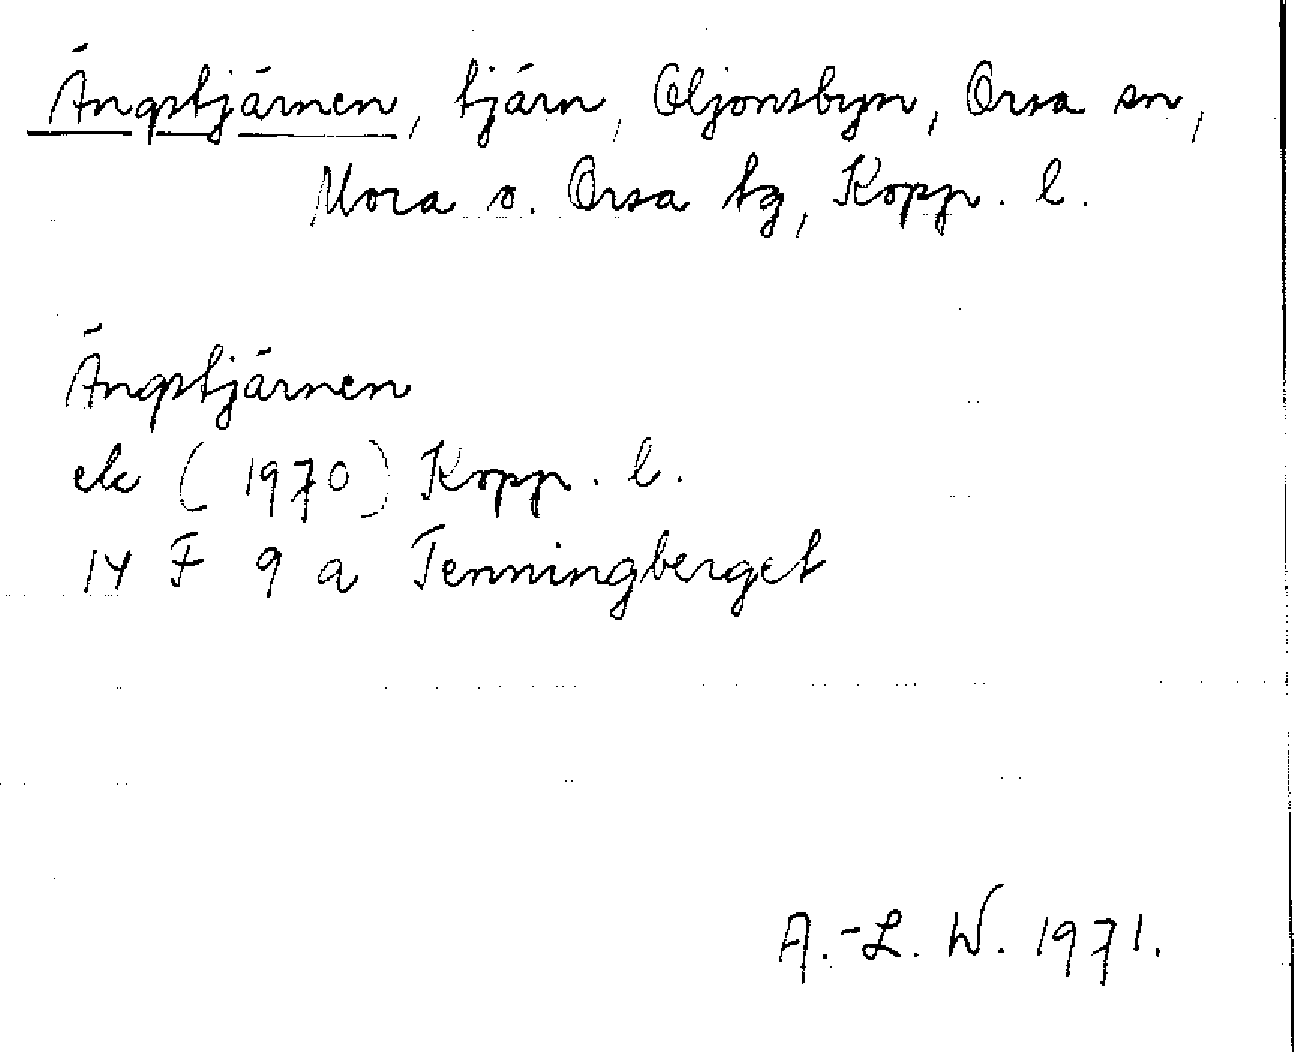 Ängstjärnen, tjärn, Oljonsbyn, Orsa sn,
Mora o. Orsa tg, Kopp. l.
Ängstjärnen
ek (1970) Kopp. l.
14 F 9 a Tenningberget
A.-L. W. 1971.